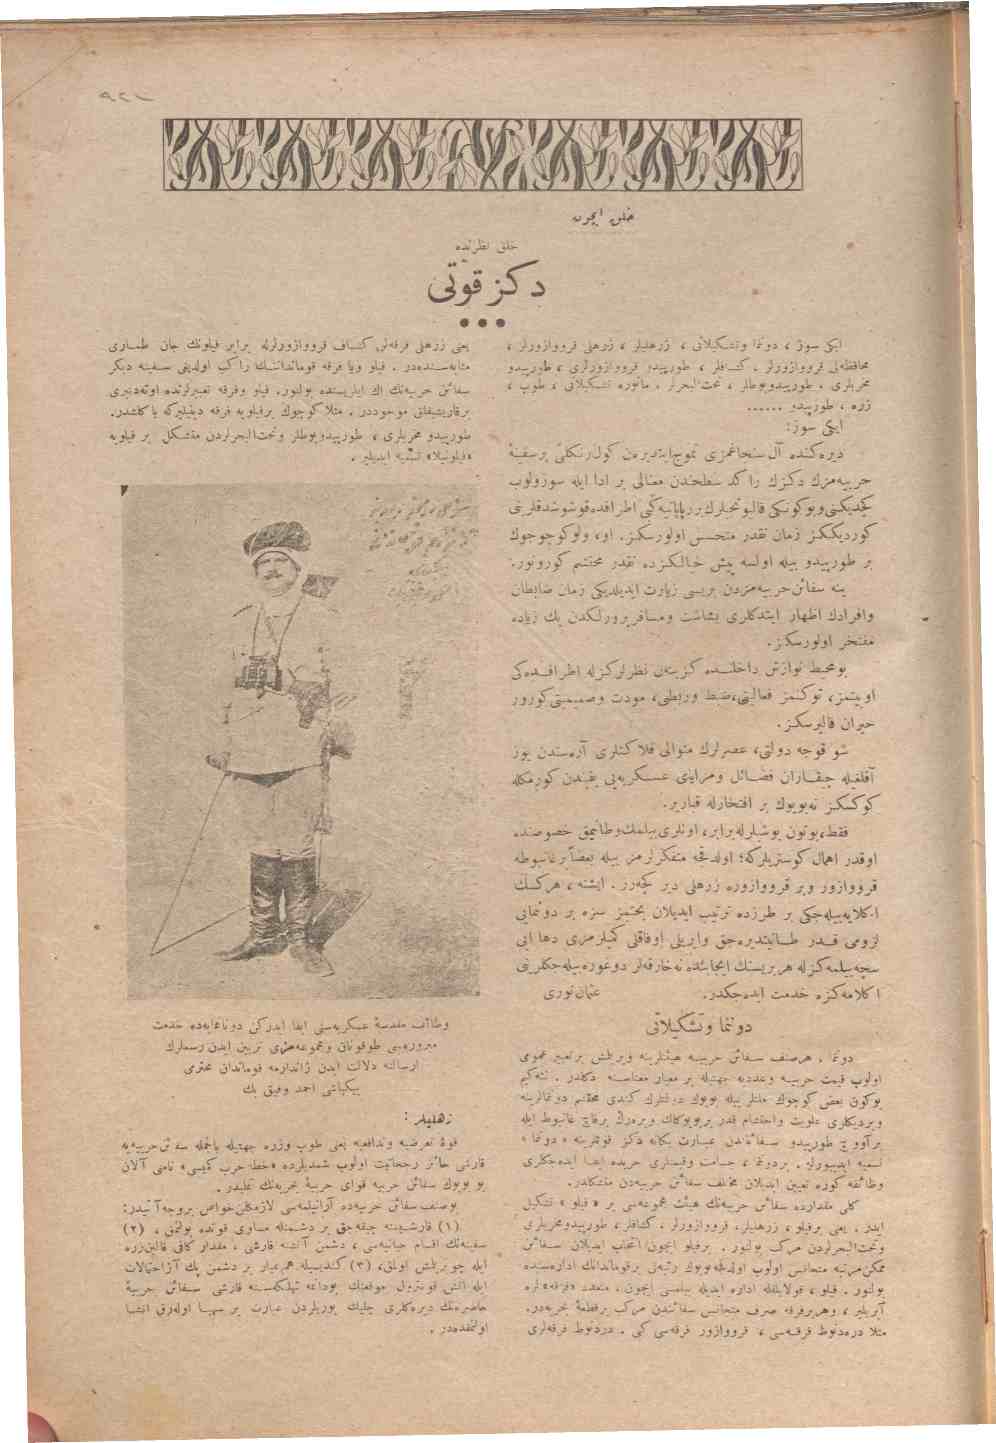 خلق ایچون
خلق نظرنده
دكز قوتی
ایكی سوز ، دونما وتشكیلاتی ، زرهلیلر ، زرهلی قرووازورلر ،
محافظه‌لی قرووازورلر . كشافلر ، طورپیدو قرووازورلری ، طورپیدو
مخربلری ، طورپیدوبوطلر ، تحت‌البحرلر ، مانوره تشكیلاتی ، طوپ ،
زره ، طورپیدو ......
ایكی سوز:
دیره‌كنده آل سنجاغمزی تموج ایتدیره‌ن كول‌رنكلی برسفینهٔ
حربیه‌مزك دكزك راكد سطحندن متعالی بر ادا ایله سوزولوب
كچدیكنی وبوكونكی قالیوتجیلرك بررپاپانیه‌كبی اطرافده‌قوشوشدقلرینی
كوردیككز زمان نقدر متحسس اولورسكز. او، ولوكوچوجوك
بر طورپیدو بیله اولسه پیش خیالكزده نقدر محتشم كورونور.
ینه سفائن حربیه‌مزدن بریسی زیارت ایدیلدیكی زمان ضابطان
وافرادك اظهار ایتدكلری بشاشت ومسافرپرورلكدن پك زیاده
مفتخر اولورسكز.
بومحیط نوازش داخلنده كزینه‌ن نظرلركزله اطرافده‌كی
اوبیتمز، توكنمز فعالیتی،ضبط وربطی، مودت وصمیمیتی كورور
حیران قالیرسكز.
شو قوجه دولتی، عصرلرك متوالی فلاكتلری آره‌سندن یوز
آقلغیله چیقاران فضائل ومزایای عسكریه‌یی یقیندن كورمكله
كوكسكز نه‌بویوك بر افتخارله قباریر.
فقط،بوتون بوشیلرله‌برابر، اونلری‌بیلمك‌وطانیمق خصوصنده
اوقدر اهمال كوستریلركه؛ اولدقجه متفكرلرمز بیله بعضاً برغانبوطه
قرووازور وبر قرووازوره زرهلی دیر كچه‌رز . ایشته ، هركسك
اكلایه‌بیله‌جكی بر طرزده ترتیب ایدیلان بحثمز سزه بر دونمایی
لزومی قدر طانیتدیره‌جق وایریلی اوفاقلی كمیلرمزی دها ایی
سچه‌بیلمه‌كزله هربریسنك ایجابنده نه خارقه‌لر دوغوره‌بیله‌جكلرینی
اكلامه‌كزه خدمت ایده‌جكدر. عثمان نوری
دونما وتشكیلاتی
دونما . هرصنف سفائن حربیه هیئتلرینه ویریلمش برتعبیر عمومی
اولوب قیمت حربیه وعددیه جهتیله بر معیار معناسنه دكلدر . نته‌كیم
بوكون بعض كوچوك ملتلر بیله بویوك دولتلرك كندی محتشم دونمالرینه
ویردیكلری علویت واحتشام قدر بربویوكلك ویره‌رك برقاچ غانبوط ایله
برآووچ طورپیدو سفائنندن عبارت یكانه دكز قوتلرینه « دونما »
تسمیه ایدییورلر. بردونما ، جسامت وقیمتلری حربده ایفا ایده‌جكلری
وظائفه كوره تعیین ایدیلان مختلف سفائن حربیه‌دن متشكلدر.
كلی مقدارده سفائن حربیه‌نك هیئت مجموعه‌سی بر « فیلو » تشكیل
ایدر . یعنی برفیلو ، زرهلیلر، قرووازورلر . كشافلر ، طورپیدومخربلری
وتحت‌البحرلردن مركب بولنور . برفیلو ایچون انتخاب ایدیلان سفائن
ممكن مرتبه متجانس اولوب اولدقجه‌بویوك رتبه‌لی برقوماندانك اداره‌سنده
بولنور . فیلو ، قولایلقله اداره ایدیله بیلمسی ایچون . متعدد «فرقه» لره
آیریلیر ، وهربرفرقه صرف متجانس سفائندن مركب برقطعهٔ بحریه‌در.
مثلا دره‌دنوط فرقه‌سی ، قرووازور فرقه‌سی كبی . دردنوط فرقه‌لری
یعنی زرهلی فرقه‌لری كشاف قرووازورلرله برابر فیلونك جان طماری
مثابه‌سنده‌در . فیلو ویا فرقه قوماندانلننك راكب اولدیغی سفینه دیكر
سفائن حربیه‌نك اك ایلریسنده بولنور. فیلو وفرقه تعبیرلرنده اوته‌دنبری
برقاریشیقلق موجوددر. مثلا كوچوك برفیلویه فرقه دینیلیركه یاكلشدر.
طورپیدو مخربلری ، طورپیدوبوطلر وتحت‌البحرلردن متشكل بر فیلویه
«فیلوتیلا» تسمیه ایدیلیر .
وظائف مقدسهٔ عسكریه‌سنی ایفا ایدركن دوننمایه‌ده خدمت
طوقونان ومجموعه‌مزی تزیین ایدن رسملرك
ارسالنه دلالت ایدن ژاندارمه قوماندان محترمی
بیكباشی احمد وفیق بك
زرهلیلر :
قوهٔ تعرضیه وتدافعیه یعنی طوپ وزره جهتیله بالجمله سفائن حربیه‌یه
قارشی حائز رجحانیت اولوب شمدیلرده «خط حرب كمیسی» نامی آلان
بو بویوك سفائن حربیه قوای حربیهٔ بحریه‌نك تملیدر .
بوصنف سفائن حربیه‌ده آرانیلمه‌سی لازمكلن خواص بروجه‌آتیدر:
(۱) قارشیسنه چیقه‌جق بر دشمنله مساوی قوتده بولنمق ، (۲)
سفینه‌نك اقسام حیاتیه‌سی ، دشمن آتشنه قارشی ، مقدار كافی قالین زره
ایله چویریلمش اولمق، (۳) كندیسیله همعیار بر دشمن پك آز احتمالات
ایله آتش قونترول موقعنك بوداعه تهلكه‌سنه قارشی سفائن حربیهٔ
حاضره‌نك دیره‌كلری چلیك بوریلردن عبارت بر سهپا اوله‌رق انشا
اولنمقده‌در .